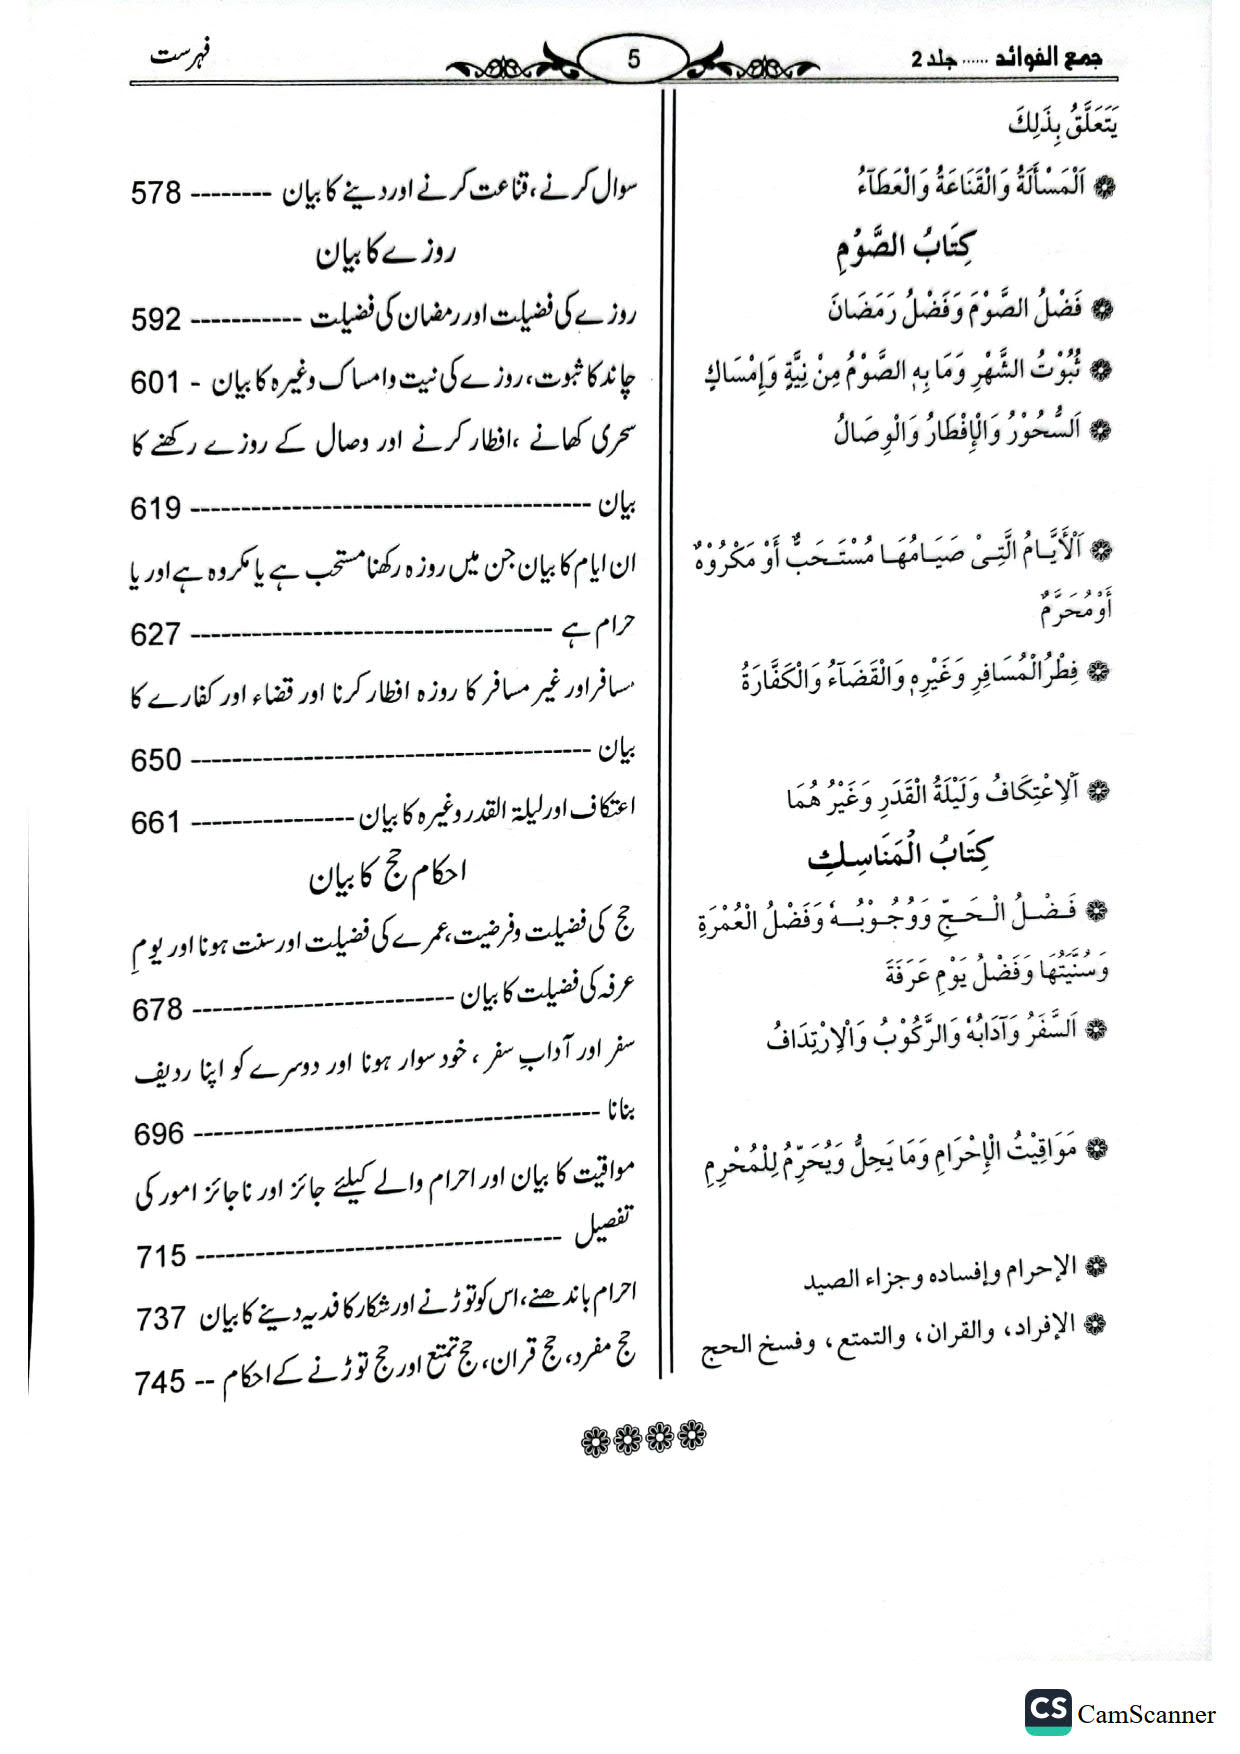 جمع الفوائد ...... جلد 2
5
فہرست
يَتَعَلَّقُ بِذَلِكَ
اَلْمَسْأَلَةُ وَالْقَنَاعَةُ وَالْعَطَآءُ
كِتَابُ الصَّوْمِ
فَضْلُ الصَّوْمِ وَفَضْلُ رَمَضَانَ
ثُبُوْتُ الشَّهْرِ وَمَا بِهِ الصَّوْمُ مِنْ نِيَّةٍ وَإِمْسَاكٍ
اَلسُّحُوْرُ وَالْإِفْطَارُ وَالْوِصَالُ
اَلْأَيَّامُ الَّتِيْ صَيَامُهَا مُسْتَحَبٌّ أَوْ مَكْرُوْهٌ
أَوْ مُحَرَّمٌ
فِطْرُ الْمُسَافِرِ وَغَيْرِهِ وَالْقَضَآءُ وَالْكَفَّارَةُ
اَلِاعْتِكَافُ وَلَيْلَةُ الْقَدَرِ وَغَيْرُ هُمَا
كِتَابُ الْمَنَاسِكِ
فَضْلُ الْحَجِّ وَوُجُوْبُهُ وَفَضْلُ الْعُمْرَةِ
وَسُنِّيَّتُهَا وَفَضْلُ يَوْمِ عَرَفَةَ
اَلسَّفَرُ وَآدَابُهُ وَالرَّكُوْبُ وَالْاِرْتِدَافُ
مَوَاقِيْتُ الْإِحْرَامِ وَمَا يَحِلُّ وَيُحَرِّمُ لِلْمُحْرِمِ
الإحرام وإفساده وجزاء الصيد
الإفراد، والقران، والتمتع، وفسخ الحج
سوال کرنے، قناعت کرنے اور دینے کا بیان -------- 578
روزے کا بیان
روزے کی فضیلت اور رمضان کی فضیلت ----------- 592
چاند کا ثبوت، روزے کی نیت و امساک وغیرہ کا بیان - 601
سحری کھانے ،افطار کرنے اور وصال کے روزے رکھنے کا
بیان --------------------------------------- 619
ان ایام کا بیان جن میں روزہ رکھنا مستحب ہے یا مکروہ ہے اور یا
حرام ہے ----------------------------------- 627
مسافر اور غیر مسافر کا روزہ افطار کرنا اور قضاء اور کفارے کا
بیان --------------------------------------- 650
اعتکاف اور لیلۃ القدر وغیرہ کا بیان ---------------- 661
احکام حج کا بیان
حج کی فضیلت و فرضیت، عمرے کی فضیلت اور سنت ہونا اور یومِ
عرفہ کی فضیلت کا بیان ------------------------- 678
سفر اور آدابِ سفر ، خود سوار ہونا اور دوسرے کو اپنا ردیف
بنانا --------------------------------------- 696
مواقیت کا بیان اور احرام والے کیلئے جائز اور ناجائز امور کی
تفصیل ----------------------------------- 715
احرام باندھنے، اس کو توڑنے اور شکار کا فدیہ دینے کا بیان 737
حج مفرد، حج قران، حج تمتع اور حج توڑنے کے احکام -- 745
CS CamScanner